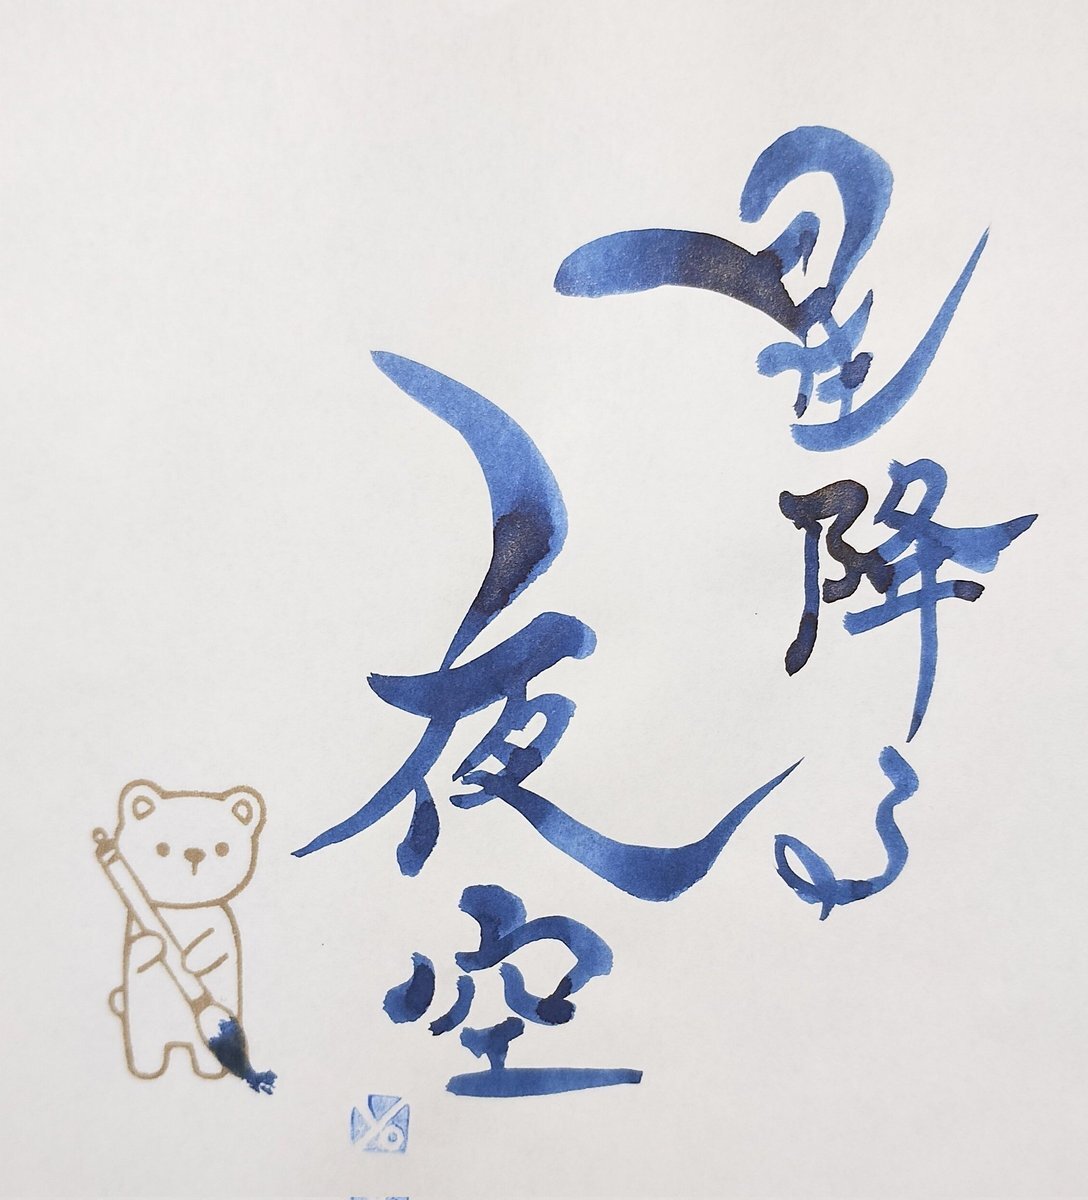 星降る
夜空